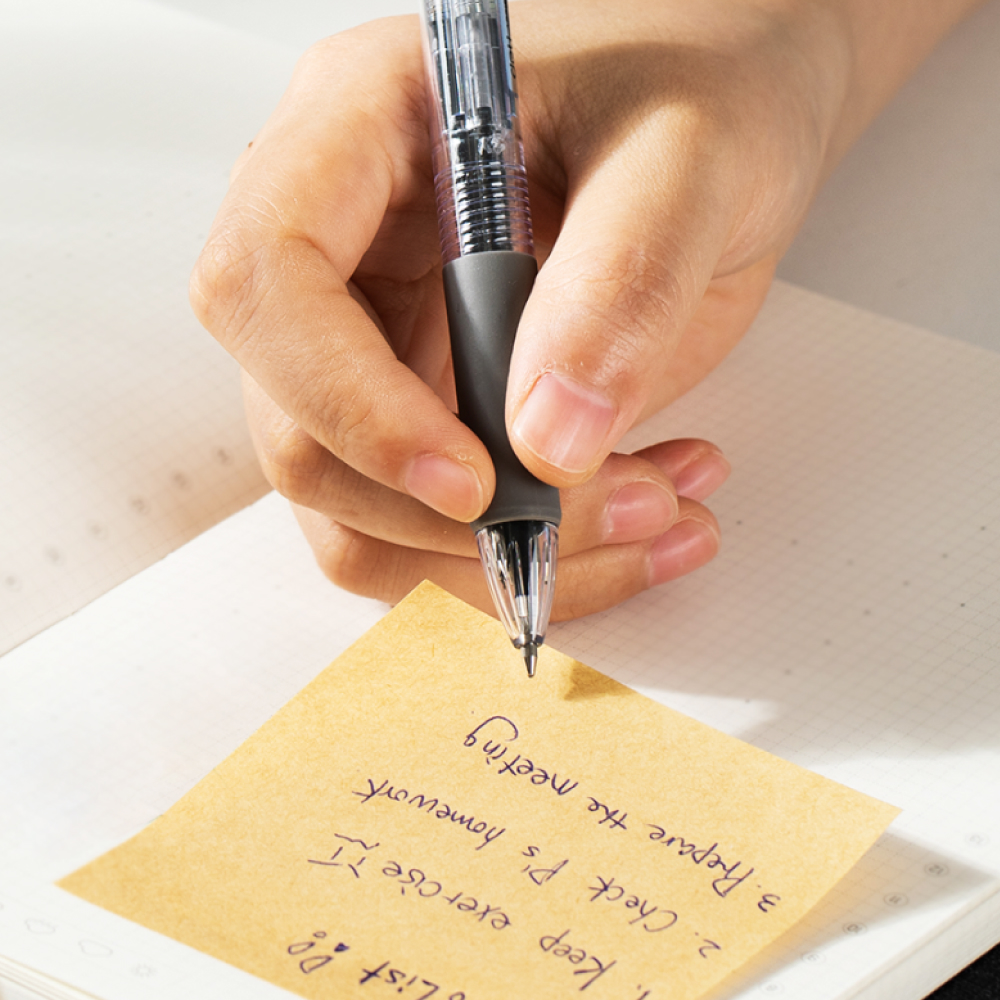 o List
1. Keep exercise
2. Check P's homework
3. Prepare the meeting